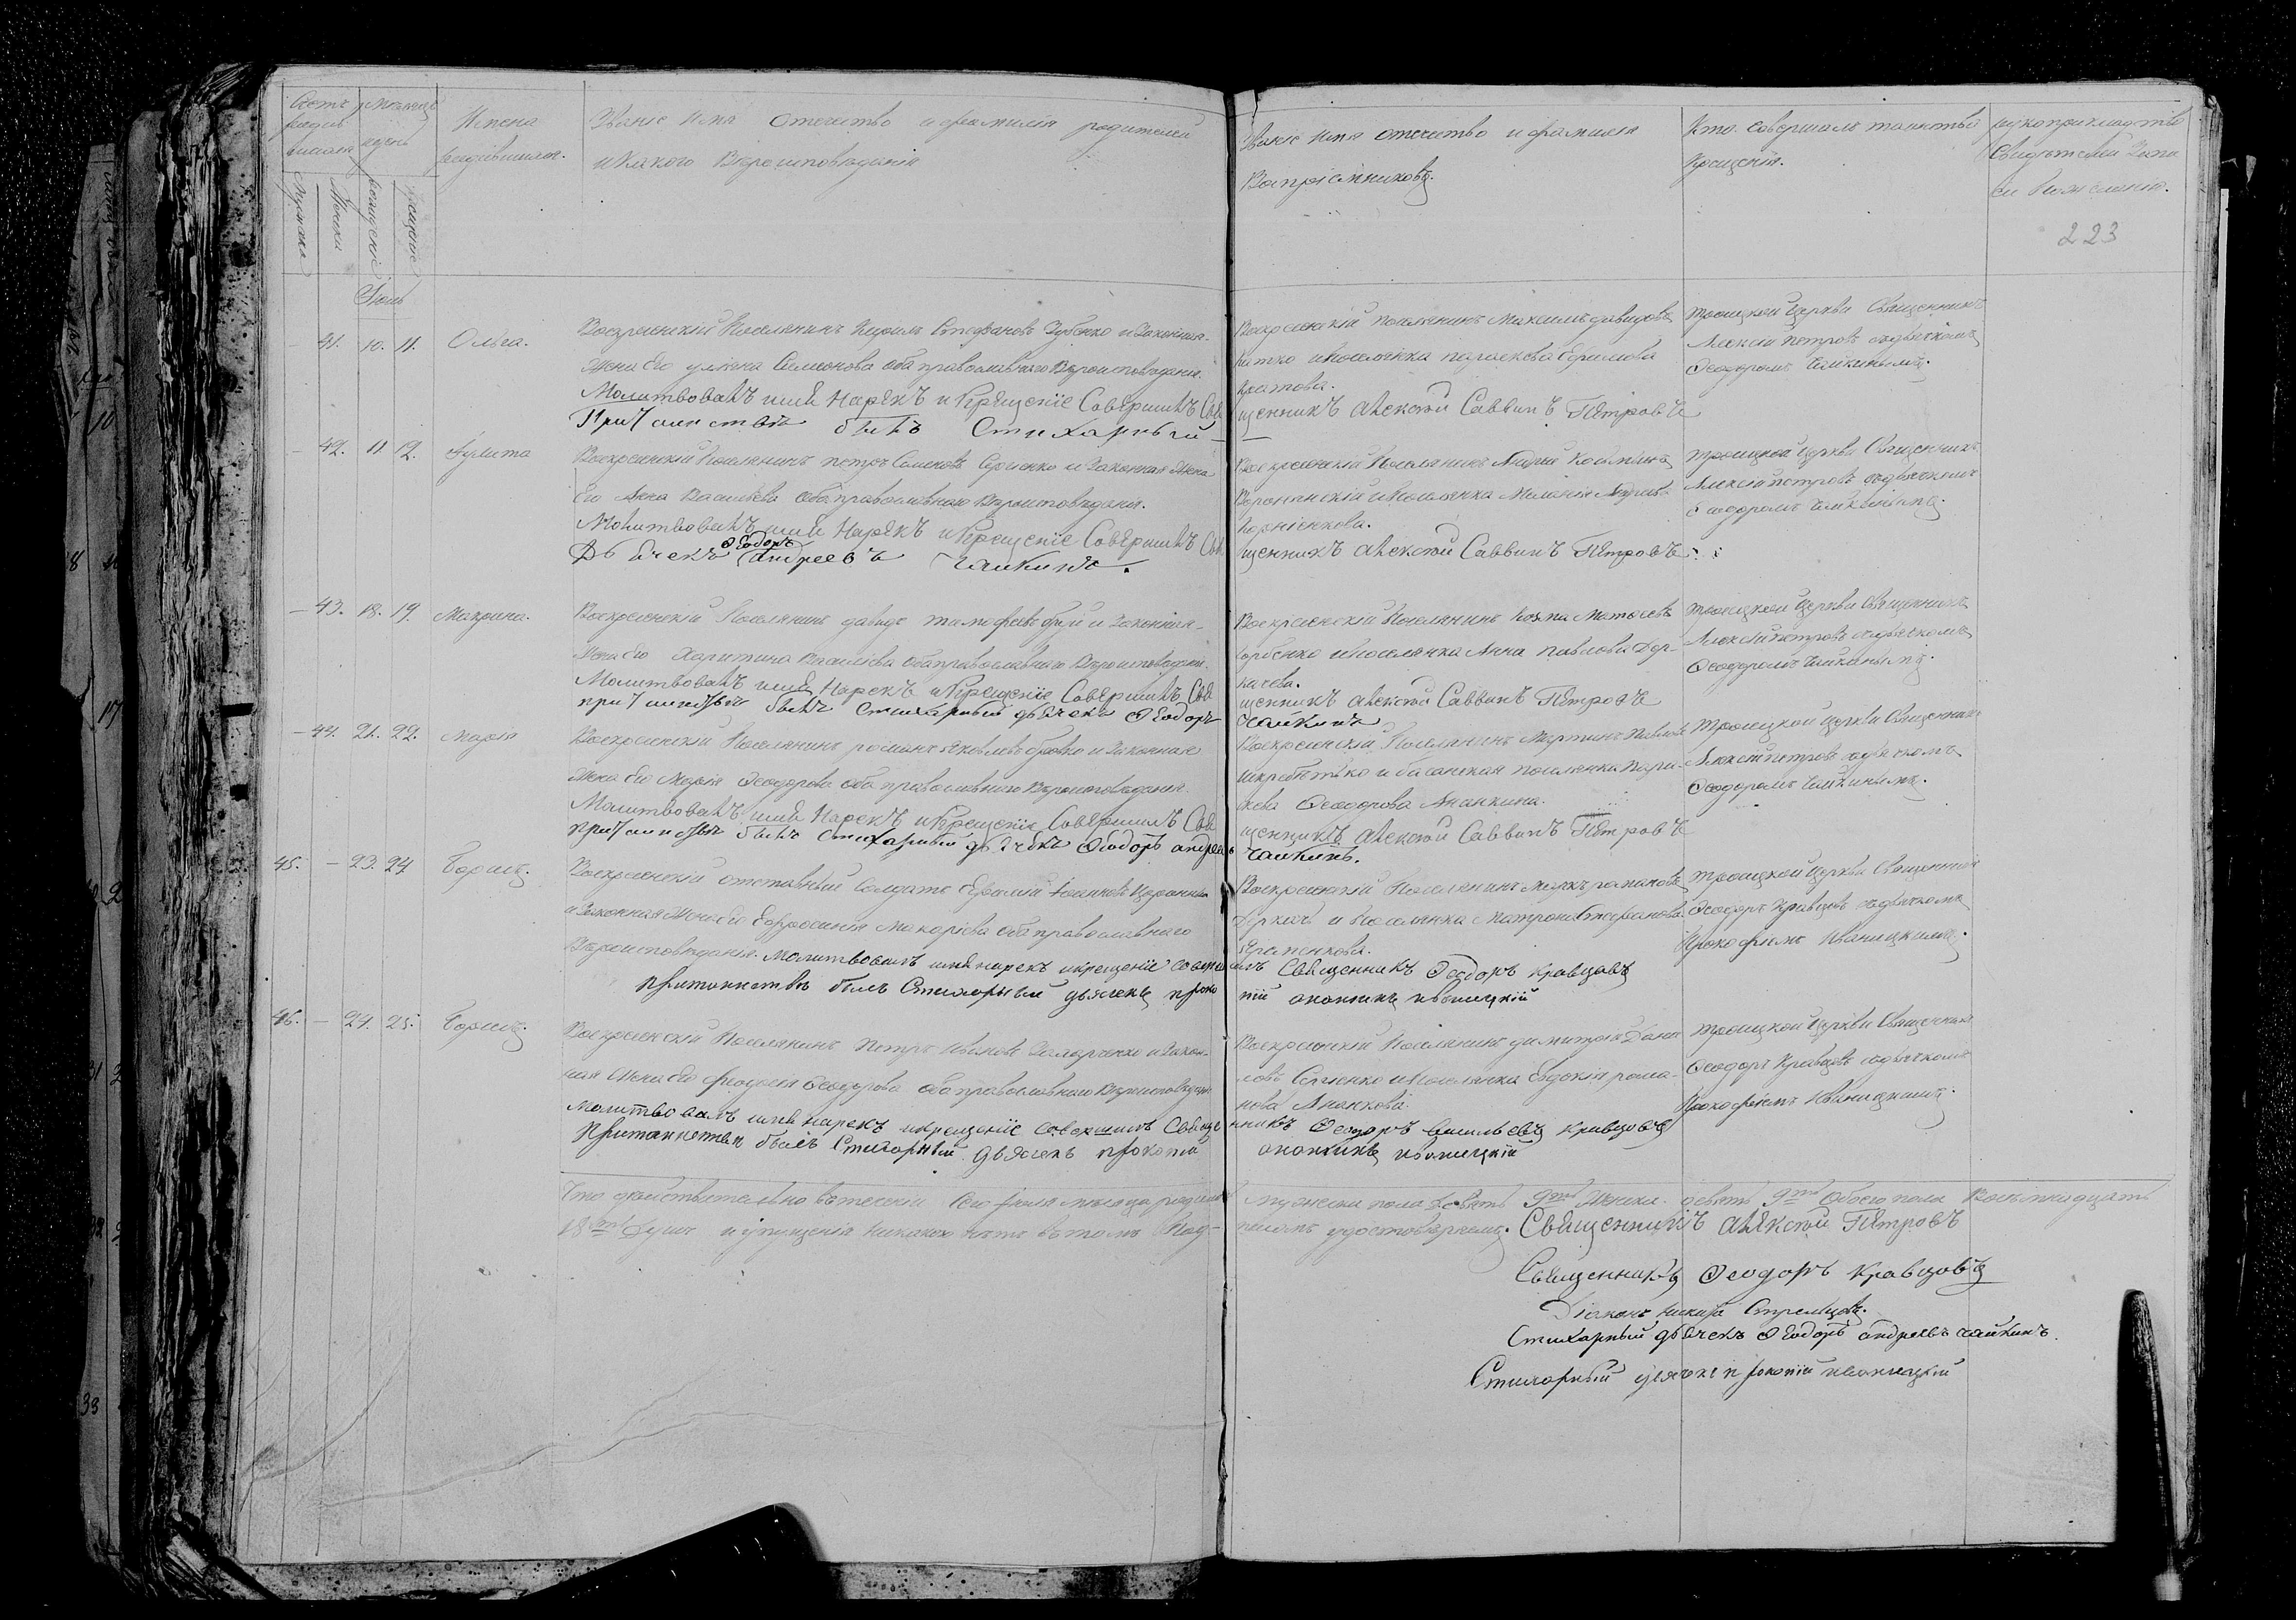 Счетъ родив шихся
Мѣсяцъ и день
Имена родившихся.
Званіе Имя Отечество и фамилія родителей
и Какого Вѣроисповѣданія
Званіе имя отечество и фамилія
Воспріемниковъ.
Кто совершалъ таинство
Крещенія.
рукоприкладство
Свидѣтелей Запи
си По желанію.
223
Мужеска
Женска
рожденіе
крещеніе
Іюль
41. 10. 11. Ольга.
Воскресенскій Поселянинъ Кирилъ Стефановъ Зубенко и Законная
Жена Его Уліяна Самсонова оба православнаго Вѣроисповѣданія.
Молитвовалъ имя Нарекъ и Крещеніе Совершилъ Свя
При таинствѣ былъ Стихарный
Воскресенскій поселянинъ Максимъ давидовъ
и поселянка параскева Ефимова
щенникъ Алексѣй Саввинъ Петровъ
троицкой Церкви Священникъ
Алексій петровъ съ дьячкомъ
Ѳеодоромъ Чайкинымъ.
42. 11 12. Іулита
Воскресенскій Поселянинъ петръ Сергіенко и Законная Жена
Его Анна Васильева оба православнаго Вѣроисповѣданія.
Молитвовалъ имя Нарекъ и Крещеніе Совершилъ Свя
Дьячекъ Ѳеодоръ андреевъ чайкинъ.
Воскресенскій Поселянинъ
и поселянка Меланія
Корніенкова.
щенникъ Алексѣй Саввинъ Петровъ
троицкой Церкви Священникъ
Алексій петровъ съ дьячкомъ
Ѳеодоромъ Чайкинымъ.
43. 18. 19. Макрина.
Воскресенскій Поселянинъ давидъ тимофѣевъ и Законная
Жена Его Харитина Васильева оба православнаго Вѣроисповѣданія.
Молитвовалъ имя Нарекъ и Крещеніе Совершилъ Свя
при таинствѣ былъ стихарный дьячекъ Ѳеодоръ
Воскресенскій Поселянинъ Козма Матѳеевъ
и поселянка Анна павлова Дер-
качева.
щенникъ Алексѣй Саввинъ Петровъ
чайкинъ
троицкой Церкви Священникъ
Алексій петровъ съ дьячкомъ
Ѳеодоромъ Чайкинымъ.
44. 21. 22. Марія
Воскресенскій Поселянинъ романъ яковлевъ и Законная
Жена Его Марія Ѳеодорова оба православнаго Вѣроисповѣданія.
Молитвовалъ имя Нарекъ и Крещеніе Совершилъ Свя
при таинствѣ былъ стихарный дьячекъ Ѳеодоръ андреевъ
Воскресенскій Поселянинъ Мартинъ Павловъ
и поселянка пара-
скева Ѳеодорова Ананкина.
щенникъ Алексѣй Саввинъ Петровъ
чайкинъ.
троицкой Церкви Священникъ
Алексій петровъ съ дьячкомъ
Ѳеодоромъ Чайкинымъ.
45. — 23. 24 Борисъ.
Воскресенскій отставный Солдатъ Евфимій Іоанновъ
и Законная Жена Его Евфросинія Макаріева оба православнаго
Вѣроисповѣданія. Молитвовалъ имя нарекъ и крещеніе соверши
при таинствѣ былъ Стихарный дьячекъ проко
Воскресенскій Поселянинъ Маркъ романовъ
Деркачъ и поселянка Матрона Стефанова
Яременкова.
лъ Священникъ Ѳеодоръ Кравцовъ
пій ананіинъ иваницкій
троицкой Церкви Священникъ
Ѳеодоръ Кравцовъ съ дьячкомъ
Прокофіемъ Иваницкимъ.
46. — 24. 25. Борисъ.
Воскресенскій Поселянинъ Петръ Ивановъ Самарченко и Закон-
ная Жена Его Феодосія Ѳеодорова оба православнаго Вѣроисповѣданія
Молитвовалъ имя нарекъ и крещеніе совершилъ Священ
при таинствѣ былъ Стихарный дьячекъ прокопій
Воскресенскій Поселянинъ димитрій Дани
ловъ Сергіенко и поселянка Евдокія рома-
нова Ананкова.
никъ Ѳеодоръ Васильевъ Кравцовъ
ананіинъ иваницкій
троицкой Церкви Священникъ
Ѳеодоръ Кравцовъ съ дьячкомъ
Прокофіемъ Иваницкимъ.
Что дѣйствительно въ теченіи Сего Іюля мѣсяца родилось мужеска пола девять 9ть Женска девять 9ть Обоего пола Восемнадцать
18ть Душъ и упущенія никакого нѣтъ въ томъ Под- писомъ удостовѣряемъ. Священникъ Алексѣй Петровъ
Священникъ Ѳеодоръ Кравцовъ
Діаконъ Никита Стрельцовъ.
Стихарный дьячекъ Ѳеодоръ андреевъ чайкинъ.
Стихарный дьячекъ прокопій иваницкій